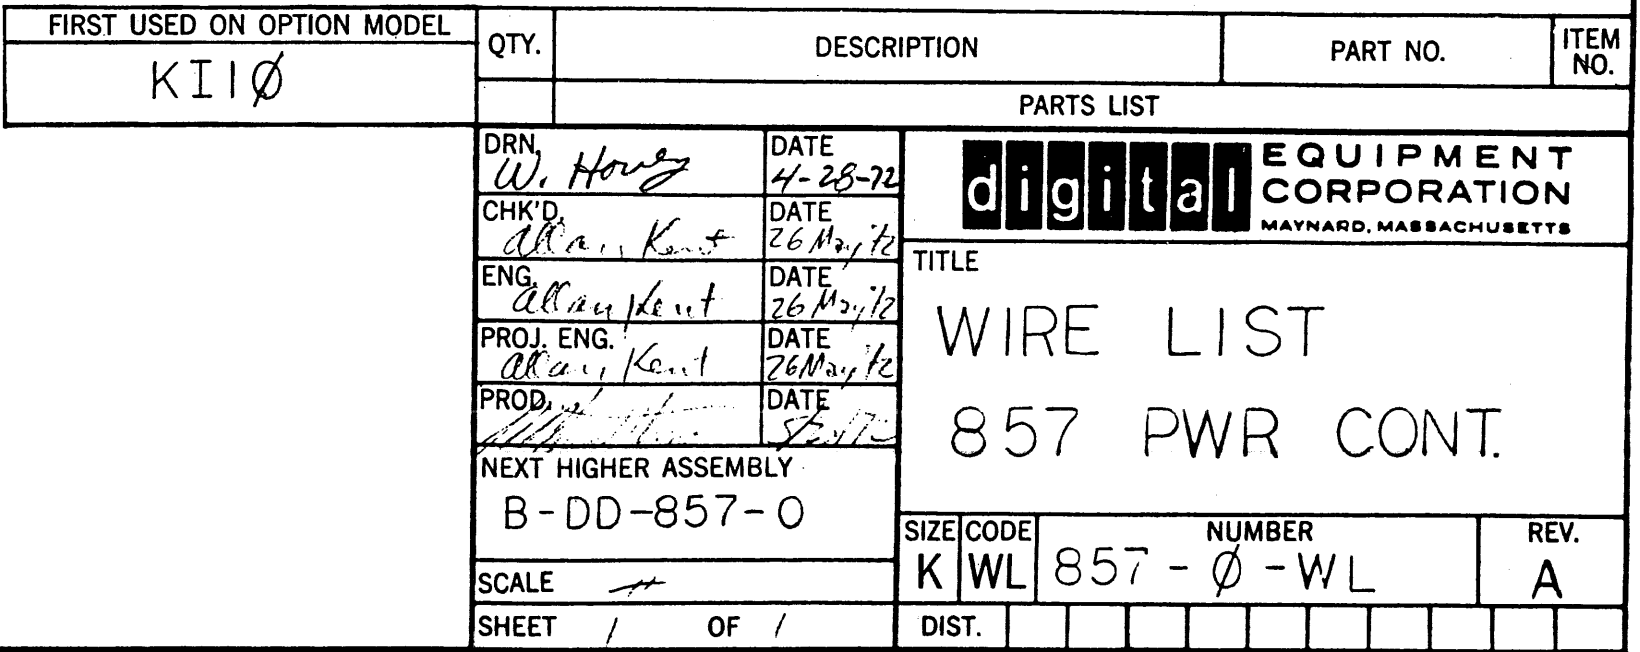 FIRST USED ON OPTION MODEL
KI1Ø
QTY.
DESCRIPTION
PART NO.
ITEM NO.
PARTS LIST
DRN.
W.
DATE
4-28-72
CHK'D.
Allan Kent
DATE
26 May 72
ENG.
Allan Kent
DATE
26 May 72
PROJ. ENG.
Allan Kent
DATE
26 May 72
PROD.
DATE
NEXT HIGHER ASSEMBLY
B-DD-857-0
SCALE
SHEET 1 OF 1
digital EQUIPMENT CORPORATION
MAYNARD, MASSACHUSETTS
TITLE
WIRE LIST
857 PWR CONT.
SIZE
K
CODE
WL
NUMBER
857-Ø-WL
REV.
A
DIST.